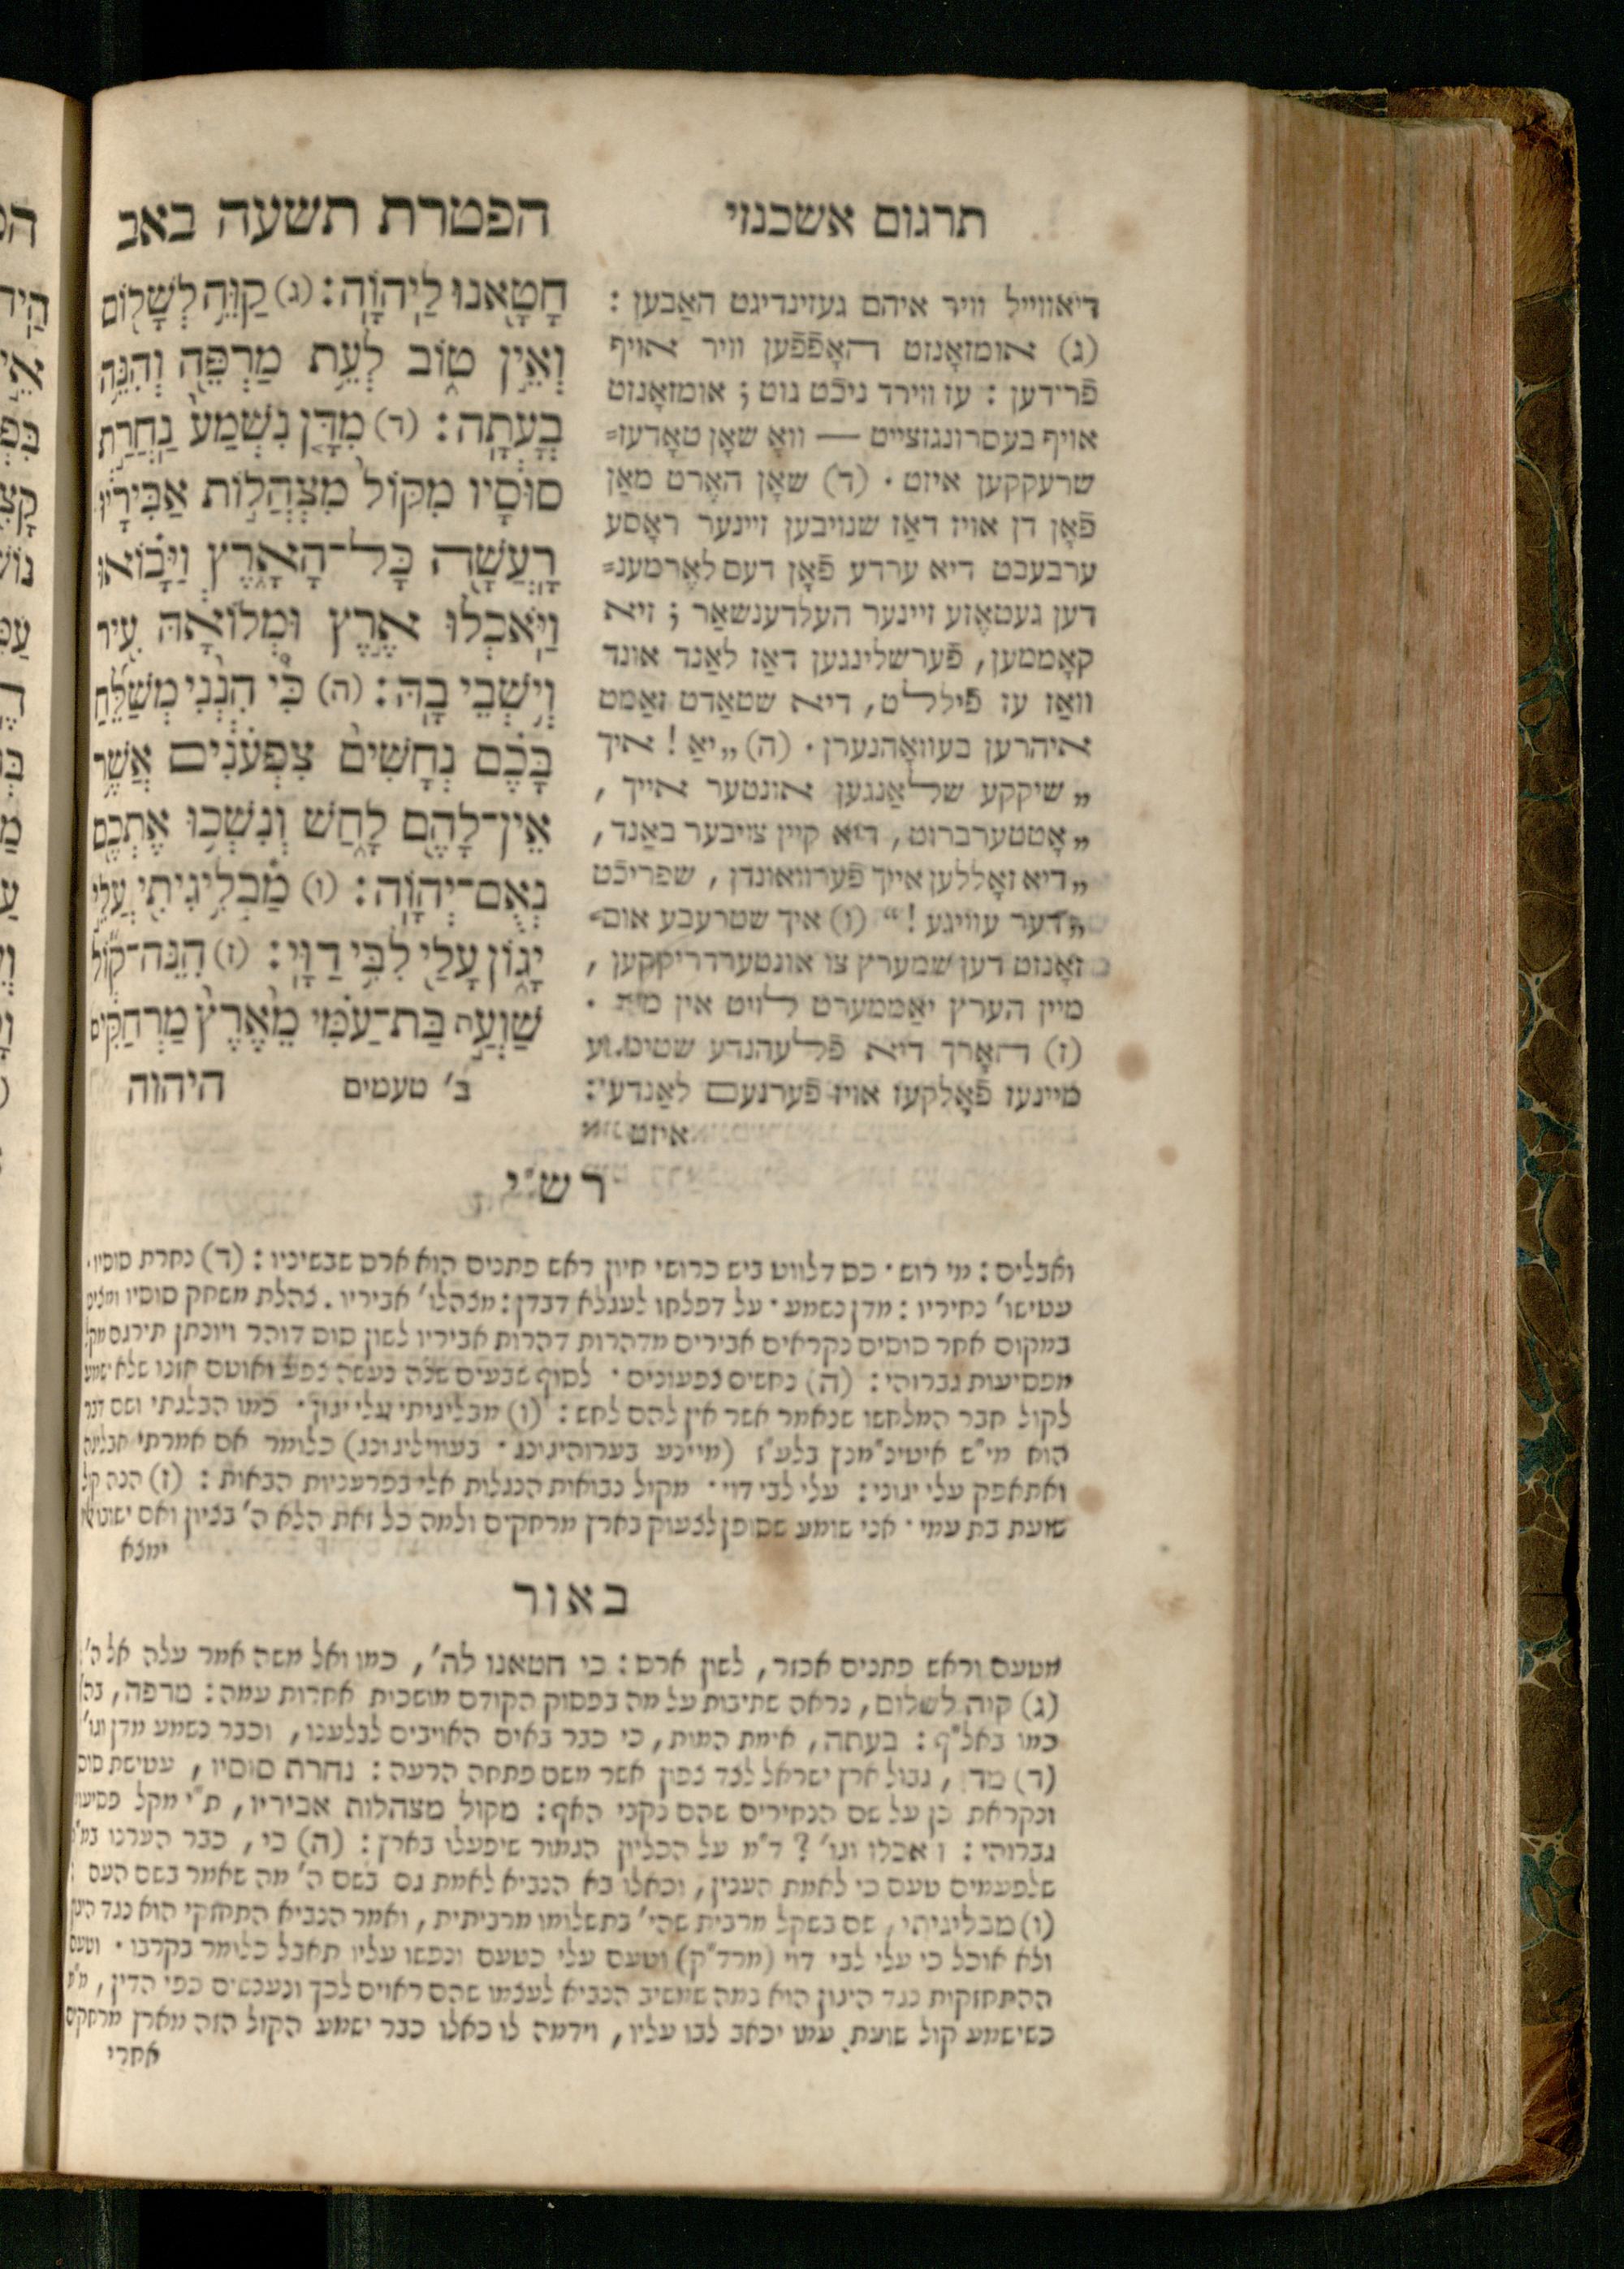 תרגום אשכנזי
הפטרת תשעה באב
דיאווייל וויר איהם געזינדיגט האַבען :
(ג) אומזאָנזט האָפֿפֿען וויר אויף
פֿרידען : עז ווירד ניכֿט גוט ; אומזאָנזט
אויף בעסרונגזצייט — וואָ שאָן טאָדעז=
שרעקקען איזט . (ד) שאָן האֶרט מאַן
פֿאָן דן אויז דאַז שנויבען זיינער ראָסע
ערבעבט דיא ערדע פֿאָן דעם לאֶרמענ=
דען געטאֶזע זיינער העלדענשאַר ; זיא
קאָממען, פֿערשלינגען דאַז לאַנד אונד
וואַז עז פֿיללט, דיא שטאַדט זאַמט
איהרען בעוואָהנערן . (ה) „יאַ! איך
„שיקקע שלאַנגען אונטער אייך ,
„אָטטערברוט, דיא קיין צויבער באַנד ,
„דיא זאָללען אייך פֿערוואונדן , שפריכֿט
„דער עוויגע !“ (ו) איך שטרעבע אומ=
זאָנזט דען שמערץ צו אונטערדריקקען ,
מיין הערץ יאַממערט לויט אין מיר .
(ז) האָרך דיא פֿלעהנדע שטיממע
מיינעז פֿאָלקעז אויז פֿערנעם לאַנדע :
איזט
חָטָאנוּ לַיהוָֹה : (ג) קַוֵּה לְשָׁלוֹם
וְאֵין טוֹב לְעֵת מַרְפֵּה וְהִנֵּה
בְעָתָה : (ד) מִדָּן נִשְׁמַע נַחְרַת
סוּסָיו מִקּוֹל מִצְהֲלוֹת אַבִּירָיו
רָעֲשָׁה כָּל־הָאָרֶץ וַיָּבוֹאוּ
וַיֹּאכְלוּ אֶרֶץ וּמְלוֹאָהּ עִיר
וְיֹשְׁבֵי בָהּ : (ה) כִּי הִנְנִי מְשַׁלֵּחַ
בָּכֶם נְחָשִׁים צִפְעֹנִים אֲשֶׁר
אֵין־לָהֶם לָחַשׁ וְנִשְּׁכוּ אֶתְכֶם
נְאֻם־יְהוָֹה : (ו) מַבְלִיגִיתִי עֲלֵי
יָגוֹן עָלַי לִבִּי דַוָּי : (ז) הִנֵּה־קוֹל
שַׁוְעַת בַּת־עַמִּי מֵאֶרֶץ מַרְחַקִּים
ב׳ טעמים היהוה
רש״י
ואבלים : מי רוש · כס דלווט ביש כרושי חיון ראש פתנים הוא ארס שבשיניו : (ד) נחרת סוסיו ·
עטישו׳ נחיריו : מדן נשמע · על דפלחו לעגלא דבדן : מצהלו׳ אביריו . צהלת משחק סוסיו
במקום אחר סוסים נקראים אבירים מדהרות דהרות אביריו לשון סוס דוהר ויונתן תירגם
מפסיעות גברוהי : (ה) נחשים צפעונים · לסוף שבעים שנה נעשה צפע ואוטם אזנו שלא ישמע
לקול חבר המלחשו שנאמר אשר אין להם לחש : (ו) מבליגיתי עלי יגון · כמו הבלגתי ושם דבר
הוא
ואתאפק עלי יגוני : עלי לבי דוי · מקול נבואות הנגלות אלי בפרעניות הבאות : (ז) הנה קול
שועת בת עמי · אני שומע שסופן לצעוק בארץ מרחקים ולמה כל זאת הלא ה׳ בציון ואם ישוטטו
ימצא
באור
מטעם וראש פתנים אכזר, לשון ארס : כי חטאנו לה׳, כמו ואל משה אמר עלה אל ה׳ :
(ג) קוה לשלום, נראה שתיבות על מה בפסוק הקודם מושכות אחרות עמה : מרפה, בה״א
כמו באל״ף : בעתה, אימת המות, כי כבר באים האויבים לבלענו, וכבר נשמע מדן וגו׳ :
(ד) מדן, גבול ארץ ישראל לצד צפון אשר משם פתחה הרעה : נחרת סוסיו, עטישת סוס
ונקראת כן על שם הנחירים שהם נקבי האף : מקול מצהלות אביריו, ת״י מקל פסיעות
גברוהי : ויאכלו וגו׳ ? ד״מ על הכליון הגמור שיפעלו בארץ : (ה) כי, כבר הערנו
שלפעמים טעם כי לאמת הענין, וכאלו בא הנביא לאמת גם בשם ה׳ מה שאמר בשם העם :
(ו) מבליגיתי, שם בשקל מרבית שהי׳ בתשלומו מרביתית, ואמר הנביא התחזקי הוא כנגד היגון
ולא אוכל כי עלי לבי דוי (מרד״ק) וטעם עלי כטעם ונפשו עליו תאבל כלומר בקרבו · וטעם
ההתחזקות כנגד היגון הוא במה שמשיב הנביא לעצמו שהם ראוים לכך ונענשים כפי הדין,
כשישמע קול שועת עמו יכאב לבו עליו, וידמה לו כאלו כבר ישמע הקול הזה מארץ מרחקים
אחרי